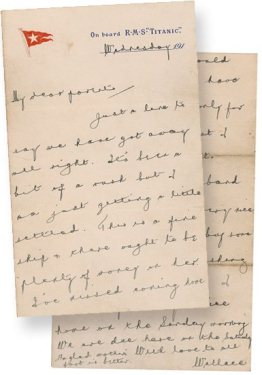 On board R·M·S "TITANIC".
Wednesday 191
My dear parents
Just a line to
say we have got away
all right. It's been a
bit of a rush but I
am just getting a little
settled. This is a fine
ship & there ought to be
plenty of money on her.
I've missed coming home
ould
have
nly for
t I
ard
ery nice
home on the Sunday morning
We are due here on the Saturday
With love to all
Wallace